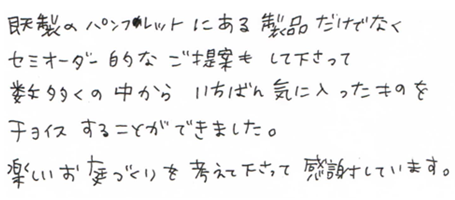 既製のパンフレットにある製品だけでなく
セミオーダー的なご提案もして下さって
数多くの中からいちばん気に入ったものを
チョイスすることができました。
楽しいお庭づくりを考えて下さって感謝しています。